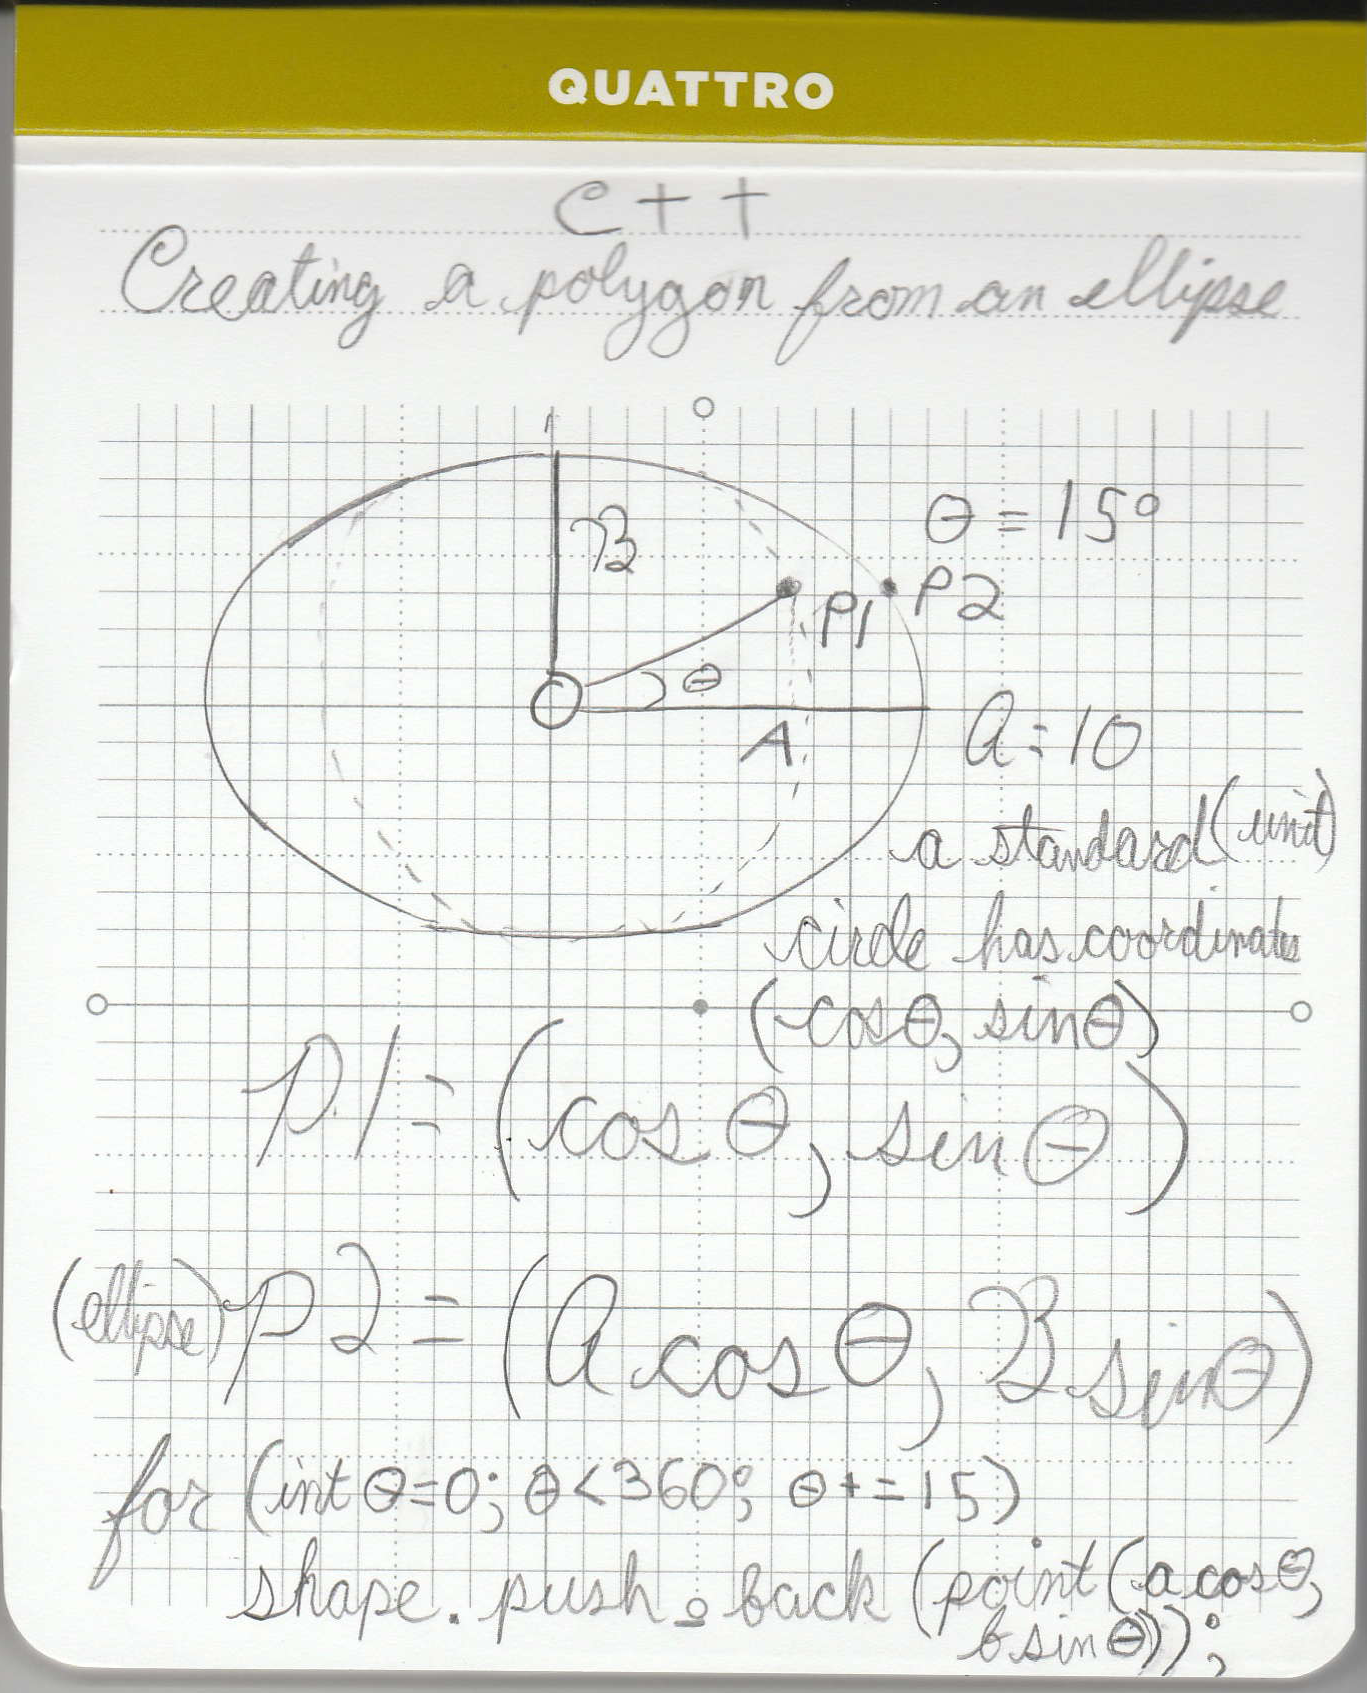 QUATTRO
C++
Creating a polygon from an ellipse
B
θ = 15°
P1
P2
θ
A
a = 10
a standard (unit)
circle has coordinates
(cosθ, sinθ)
P1 = (cos θ, sin θ)
(ellipse) P2 = (a cos θ, B sin θ)
for (int θ=0; θ<360; θ+=15)
shape.push_back (point(a cosθ,
b sin θ));